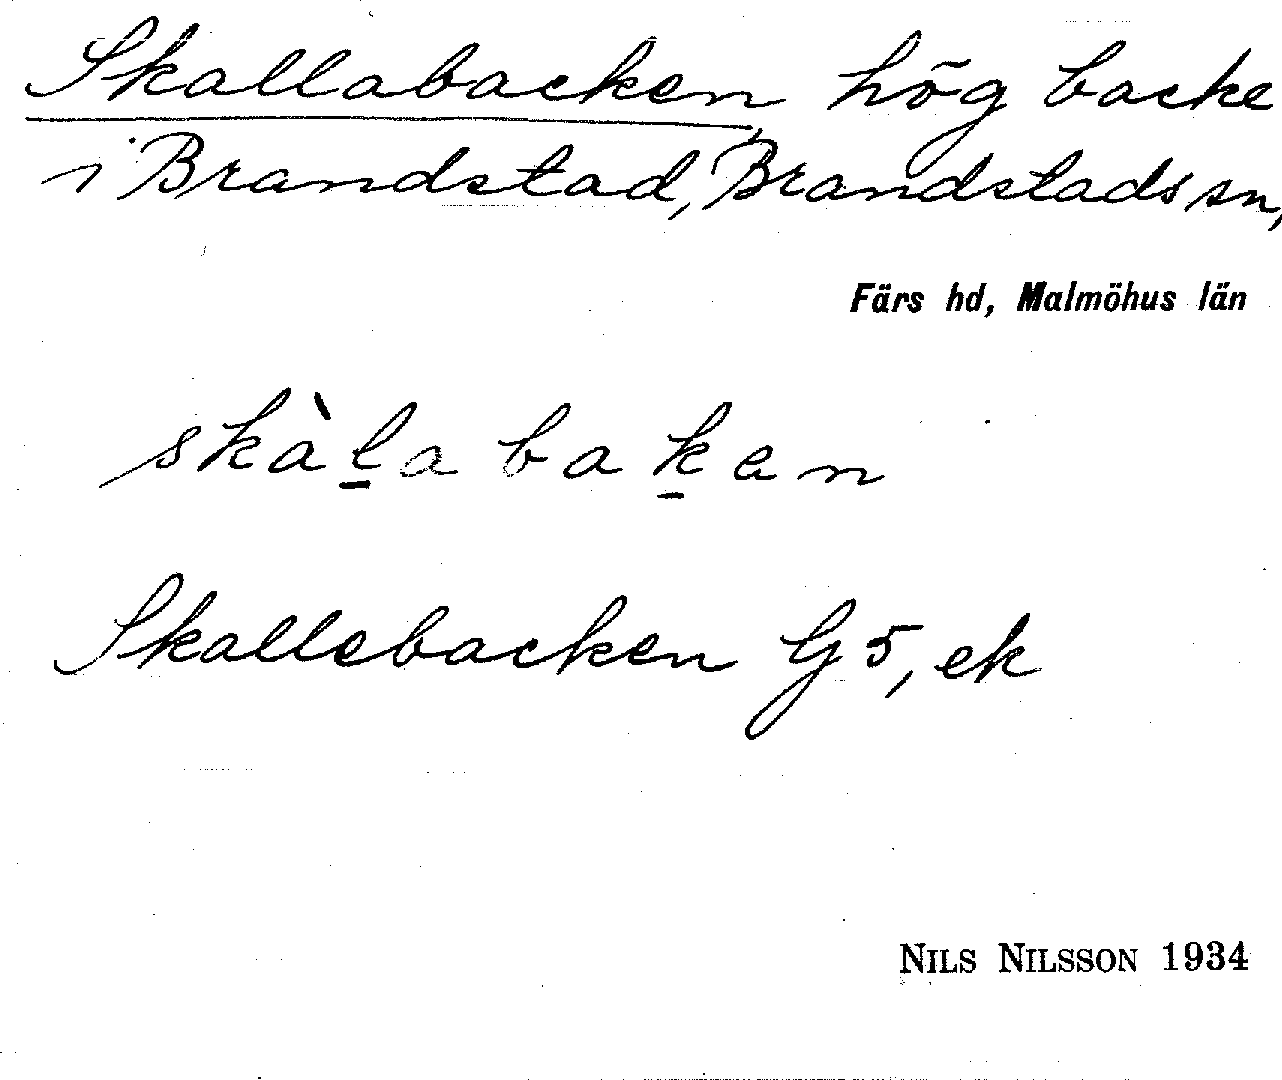 Skallabacken hög backe
i Brandstad, Brandstads sn,
Färs hd, Malmöhus län
skàl̲abak̲en
Skallebacken G5, ek
NILS NILSSON 1934